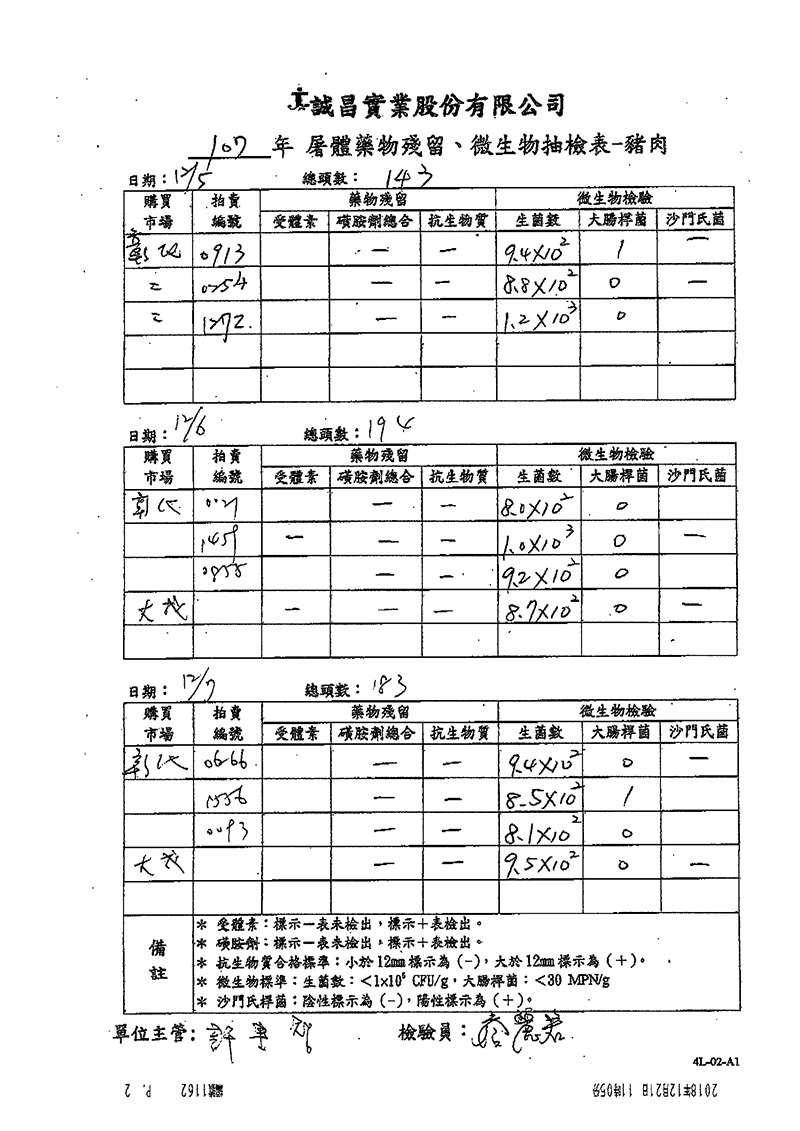 誠昌實業股份有限公司
107 年 屠體藥物殘留、微生物抽檢表-豬肉
日期：12/5 總頭數：143
購買市場 拍賣編號 藥物殘留 微生物檢驗
受體素 磺胺劑總合 抗生物質 生菌數 大腸桿菌 沙門氏菌
彰化 0913 — — 9.4X10² 1 —
〃 0254 — — 8.8X10² 0 —
〃 1272. — — 1.2X10³ 0
日期：12/6 總頭數：194
購買市場 拍賣編號 藥物殘留 微生物檢驗
受體素 磺胺劑總合 抗生物質 生菌數 大腸桿菌 沙門氏菌
彰化 0021 — — 8.0X10² 0
1459 — — — 1.0X10³ 0 —
0855 — — 9.2X10² 0
— — — 8.7X10² 0 —
日期：12/7 總頭數：183
購買市場 拍賣編號 藥物殘留 微生物檢驗
受體素 磺胺劑總合 抗生物質 生菌數 大腸桿菌 沙門氏菌
彰化 0666 — — 9.4X10² 0 —
1556 — — 8.5X10² 1
0093 — — 8.1X10² 0
— — 9.5X10² 0 —
備註
＊ 受體素：標示－表未檢出，標示＋表檢出。
＊ 磺胺劑：標示－表未檢出，標示＋表檢出。
＊ 抗生物質合格標準：小於12mm標示為（－），大於12mm標示為（＋）。
＊ 微生物標準：生菌數：<1x10⁶ CFU/g，大腸桿菌：<30 MPN/g
＊ 沙門氏桿菌：陰性標示為（－），陽性標示為（＋）。
單位主管： 檢驗員：
4L-02-A1
2018年12月21日 11時05分 編號1162 P. 2